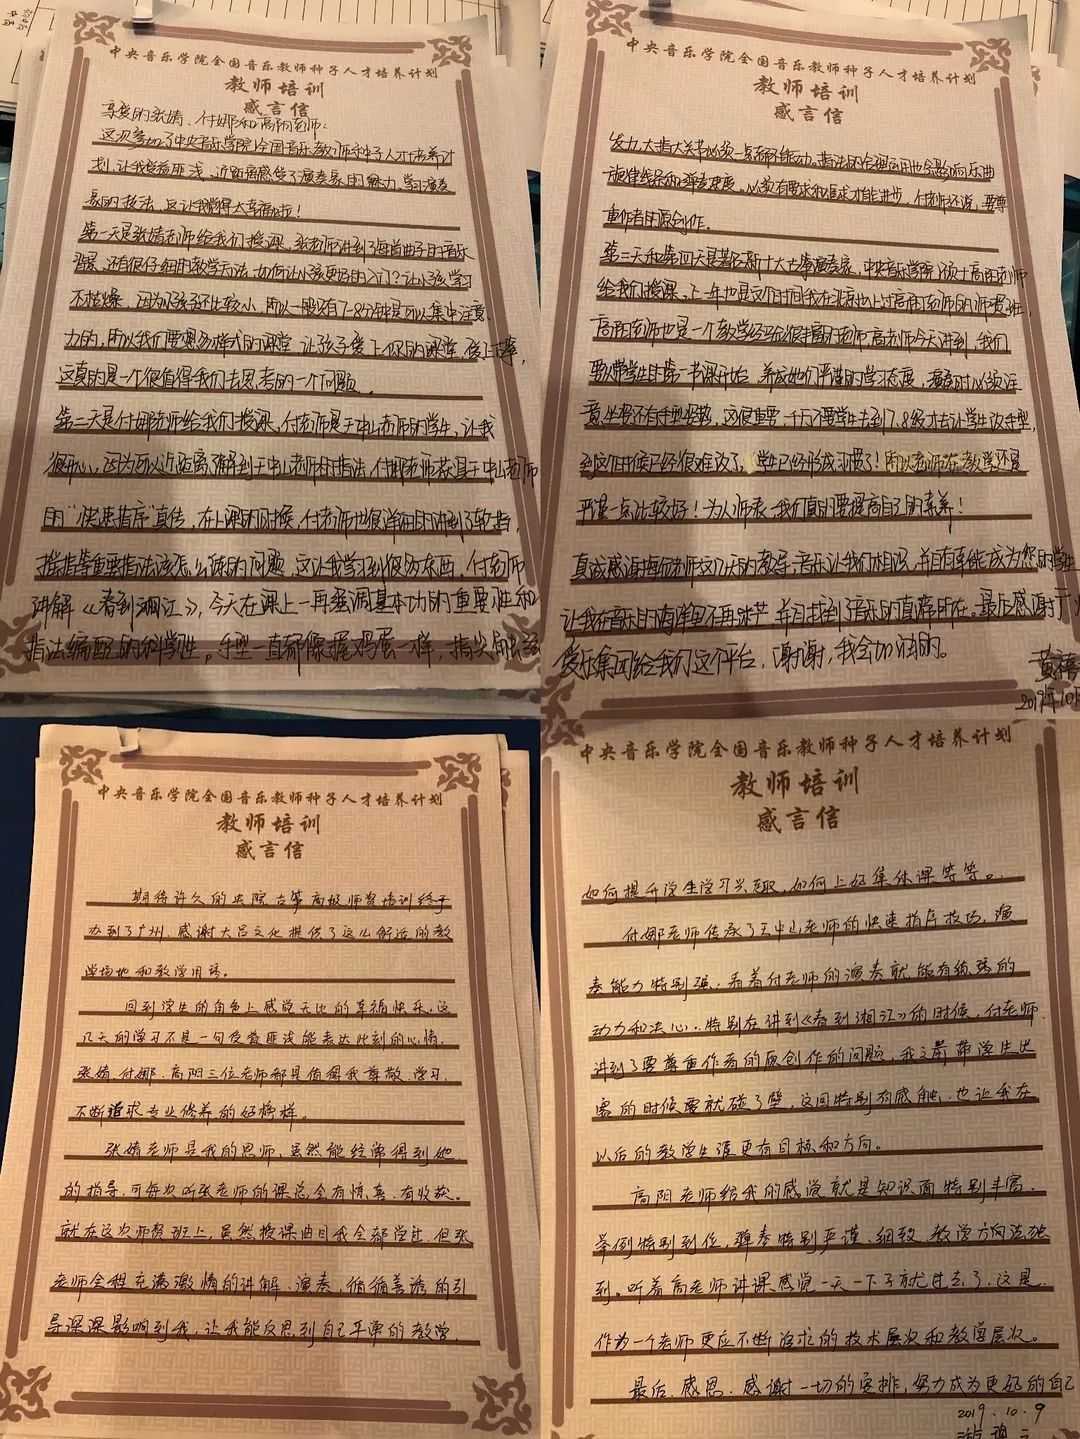 中央音乐学院全国音乐教师种子人才培养计划
教师培训
感言信
亲爱的张婧、付娜和高阳老师:
这次参加了中央音乐学院全国音乐教师种子人才培养计
划,让我受益匪浅,近距离感受了演奏家的魅力,学习演奏
家的技法,这让我觉得太幸福啦!
第一天是张婧老师给我们授课,张老师讲到了每首曲子的音乐
背景,还有很仔细的教学方法,如何让小孩更好的入门?让小孩学习
不枯燥,因为小孩子还比较小,所以一般只有7-8分钟是可以集中注意
力的,所以我们要多样式的课堂,让孩子爱上你的课堂,爱上古筝,
这真的是一个很值得我们去思考的一个问题。
第二天是付娜老师给我们授课,付老师是王中山老师的学生,让我
很开心,因为可以近距离了解到王中山老师的指法,付娜老师获王中山老师
的“快速指序”真传,在上课的时候,付老师也很详细的讲到了轮指,
摇指等重要指法该怎么练的问题,这让我学习到很多东西,付老师
讲解《春到湘江》,今天在课上一再强调基本功的重要性和
指法编配的科学性。手型一直都像握鸡蛋一样,指尖触弦
中央音乐学院全国音乐教师种子人才培养计划
教师培训
感言信
发力,大指大关节必须一点都不能动。指法的合理运用也会影响乐曲
旋律线条和弹奏速度。必须有要求和追求才能进步,付老师还说,要尊
重作者的原创作。
第三天和第四天是著名新十大古筝演奏家,中央音乐学院硕士高阳老师
给我们授课,上一年也是这个时间我在北京也上过高阳老师的师资班,
高阳老师也是一个教学经验很丰富的老师,高老师今天讲到,我们
要从带学生的第一节课开始,养成她们严谨的学习态度,演奏时必须注
意,坐姿还有手型姿势,这很重要,千万不要学生去到7.8级才去让学生改手型,
到这个时候已经很难改了,学生已经形成习惯了!所以老师在教学还是
严谨一点比较好!为人师表,我们真的要提高自己的素养!
真诚感谢每位老师这几天的教导,音乐让我们相识,并且有幸能成为您的学生
让我在音乐的海洋里不再迷茫,并且找到了音乐的真谛所在。最后感谢广州
爱乐集团给我们这个平台,谢谢,我会加油的。
黄禧
2019年10月
中央音乐学院全国音乐教师种子人才培养计划
教师培训
感言信
期待许久的央院古筝高级师资培训终于
办到了广州、感谢大吕文化提供了这么舒适的教
学场地和教学用琴。
回到学生的角色上感觉无比的幸福快乐,这
几天的学习不是一句受益匪浅能表达此刻的心情,
张婧、付娜、高阳三位老师都是值得我尊敬、学习、
不断追求专业修养的好榜样。
张婧老师是我的恩师,虽然能经常得到她
的指导,可每次听张老师的课总会有惊喜、有收获。
就在这次师资班上,虽然授课曲目我全部学过,但张
老师全程充满激情的讲解、演奏,循循善诱的引
导深深影响到我,让我能反思到自己平常的教学,
中央音乐学院全国音乐教师种子人才培养计划
教师培训
感言信
如何提升学生学习兴趣,如何上好集体课等等。
付娜老师传承了王中山老师的快速指序技巧,演
奏能力特别强,看着付老师的演奏就能有练琴的
动力和决心。特别在讲到《春到湘江》的时候,付老师
讲到了要尊重作者的原创作的问题,我之前带学生比
赛的时候就碰了壁,这回特别有感触,也让我在
以后的教学生涯更有目标和方向。
高阳老师给我的感觉就是知识面特别丰富,
举例特别到位,弹奏特别严谨、细致,教学方向法独
到。听着高老师讲课感觉一天一下子就过去了,这是
作为一个老师更应不断追求的技术层次和教学层次。
最后,感恩、感谢一切的安排,努力成为更好的自己
2019.10.9